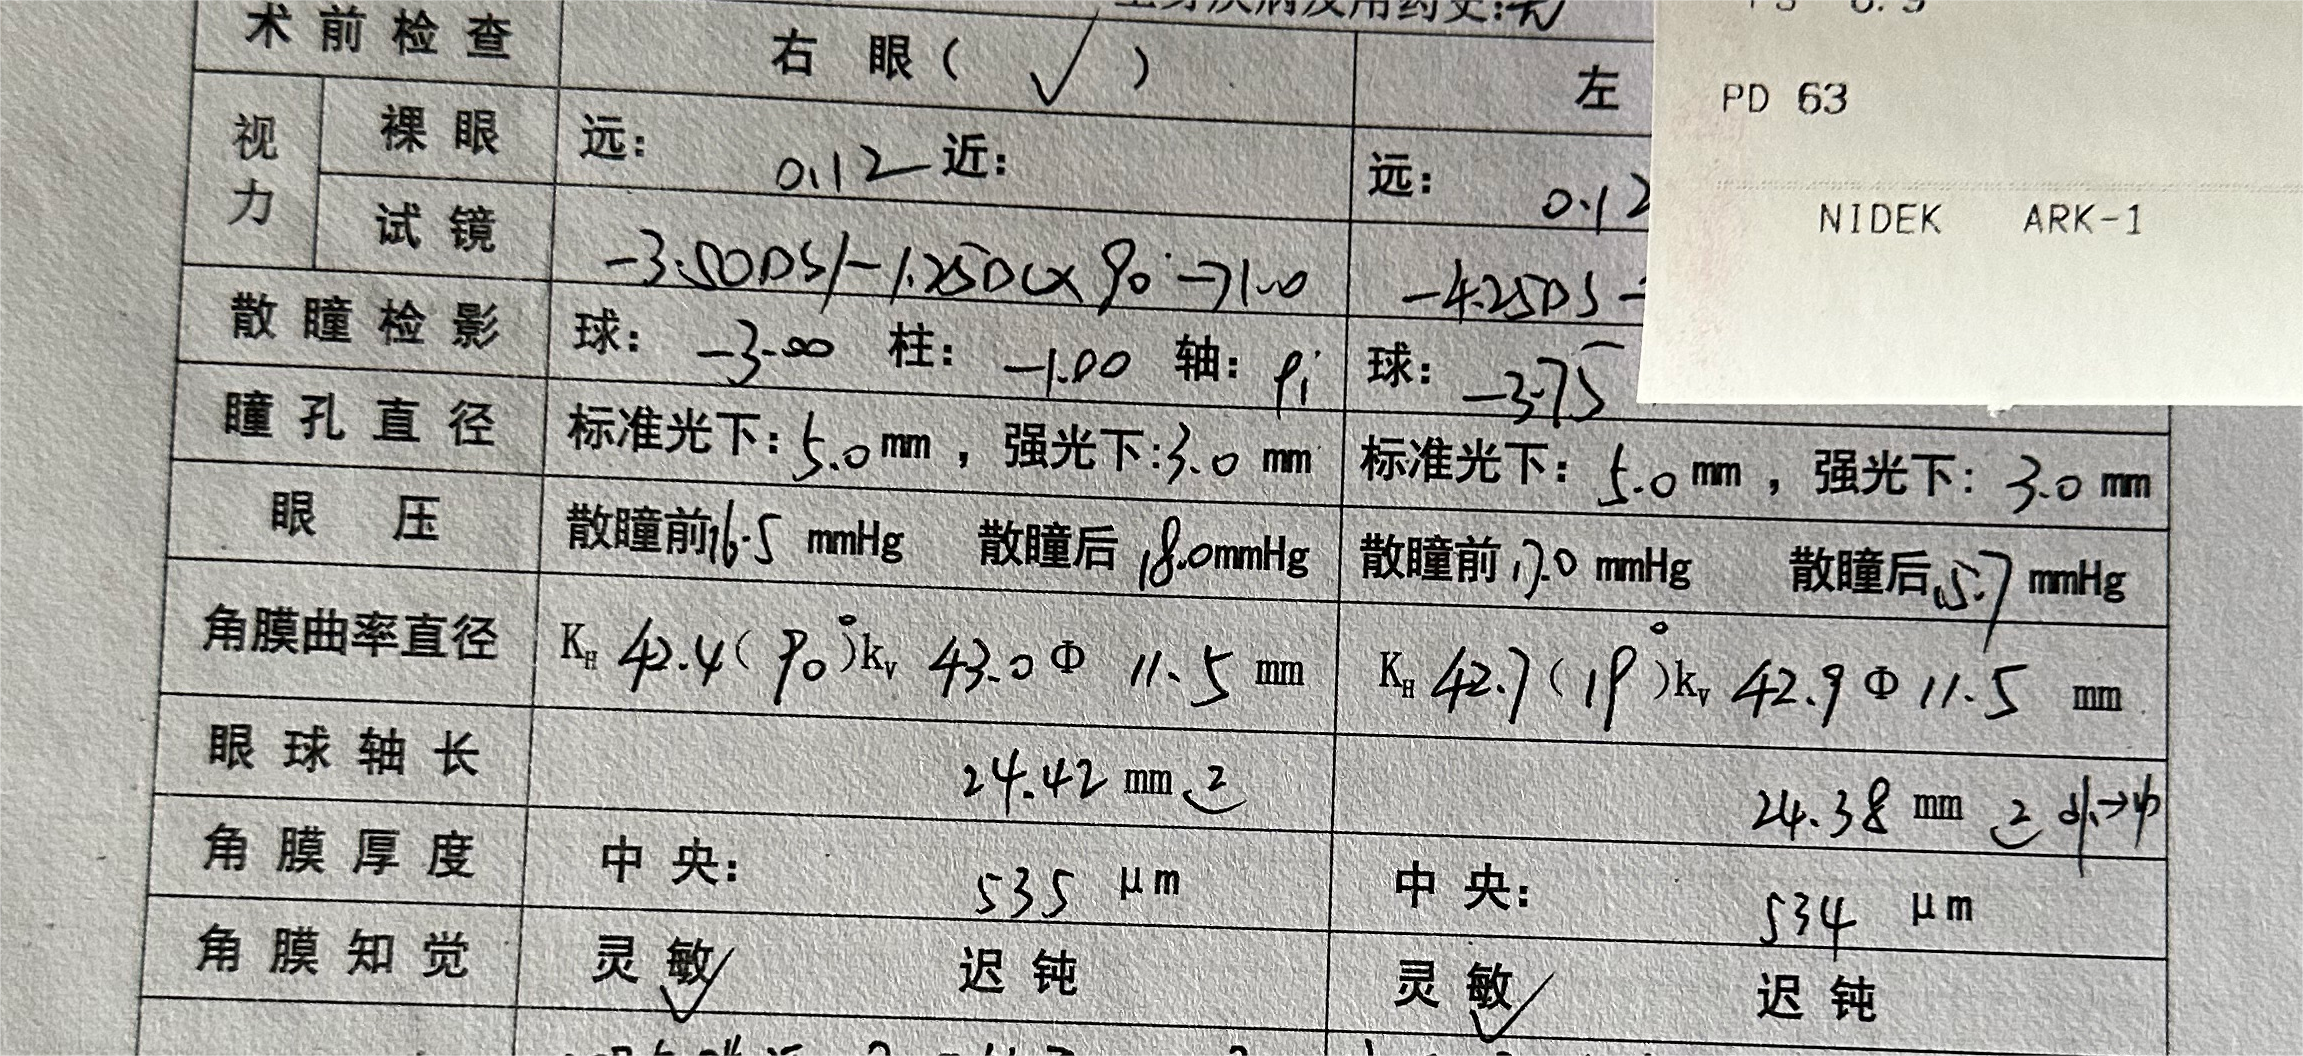 PD 63
NIDEK ARK-1
术前检查 右 眼( √ ) 左
视力 裸眼 远: 0.12 近: 远: 0.12
试镜 -3.50DS/-1.25DC×90°→1.0 -4.25DS
散瞳检影 球: -3.00 柱: -1.00 轴: 球: -3.75
瞳孔直径 标准光下: 5.0 mm , 强光下: 3.0 mm 标准光下: 5.0 mm , 强光下: 3.0 mm
眼 压 散瞳前 16.5 mmHg 散瞳后 18.0 mmHg 散瞳前 17.0 mmHg 散瞳后 15.7 mmHg
角膜曲率直径 KH 42.4 ( 90° ) kv 43.0 Φ 11.5 mm KH 42.7 ( 19° ) kv 42.9 Φ 11.5 mm
眼球轴长 24.42 mm 24.38 mm
角膜厚度 中央: 535 μm 中央: 534 μm
角膜知觉 灵敏√ 迟钝 灵敏√ 迟钝